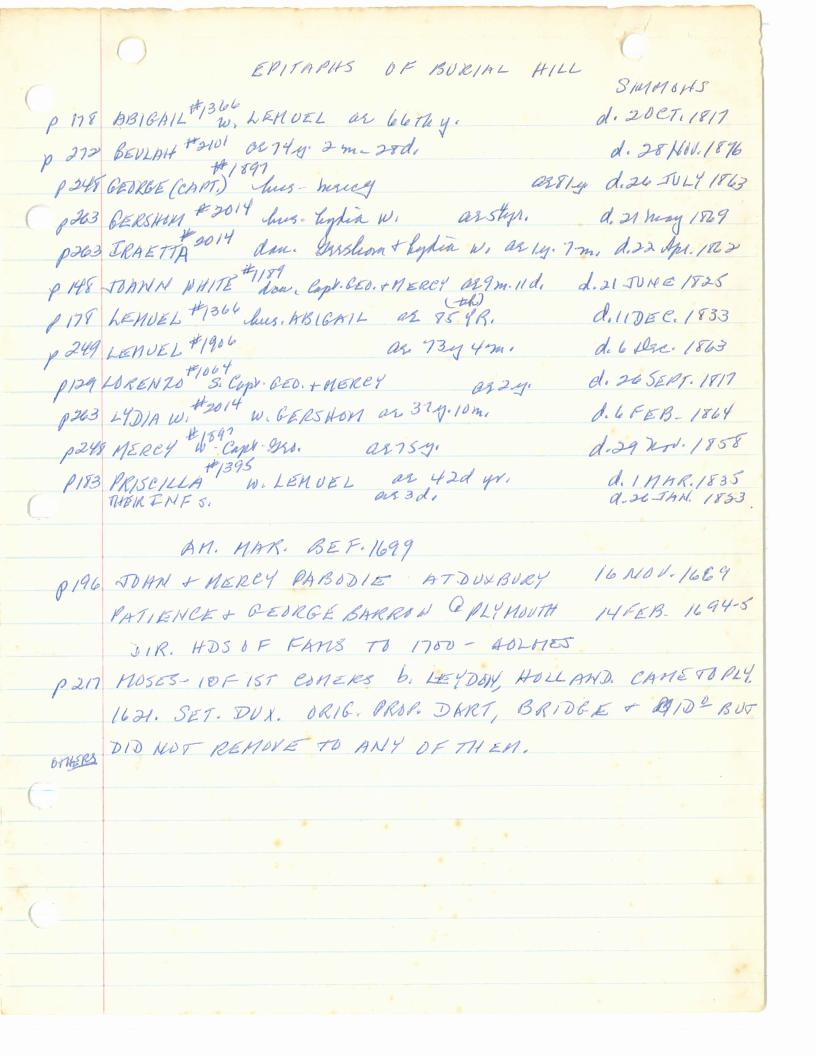 EPITAPHS OF BURIAL HILL
SIMMONS
p 178 ABIGAIL #1366 w. LEMUEL ae 66th y. d. 2 OCT. 1817
p 272 BEULAH #2101 ae 74y. 2m - 28d. d. 28 NOV. 1876
p248 GEORGE (CAPT.) #1897 hus - mercy ae 81y d. 26 JULY 1863
p263 GERSHOM #2014 hus - Lydia W. ae yr. d. 21 may 1869
p263 IRAETTA #2014 dau. Gershom + Lydia W. ae 1y. 7m. d. 22 Apr. 1862
p 148 JOANN WHITE #1189 dau. Capt. GEO. + MERCY ae 9m. 11d. d. 21 JUNE 1825
p 178 LEMUEL #1366 hus. ABIGAIL ae 85 (th) YR. d. 11 DEC. 1833
p 249 LEMUEL #1906 ae 73y 4m. d. 6 Dec. 1863
p129 LORENZO #1064 S. Capt. GEO. + MERCY ae 2y. d. 26 SEPT. 1817
p263 LYDIA W. #2014 w. GERSHOM ae 37y. 10m. d. 6 FEB - 1864
p248 MERCY #1897 w - Capt. Geo. ae 75y. d. 29 Nov. 1858
p183 PRISCILLA #1395 w. LEMUEL ae 42d yr. d. 1 MAR. 1835
THEIR INF S. ae 3d. d. 26 JAN. 1833
AM. MAR. BEF. 1699
p196 JOHN + MERCY PABODIE AT DUXBURY 16 NOV. 1669
PATIENCE + GEORGE BARROW @ PLYMOUTH 14 FEB - 1694-5
DIR. HDS OF FAMS TO 1700 - HOLMES
p 217 MOSES - 1 OF 1ST COMERS b. LEYDON, HOLLAND. CAME TO PLY.
1621. SET. DUX. ORIG. PROP. DART, BRIDGE + MID° BUT
DID NOT REMOVE TO ANY OF THEM.
OTHERS